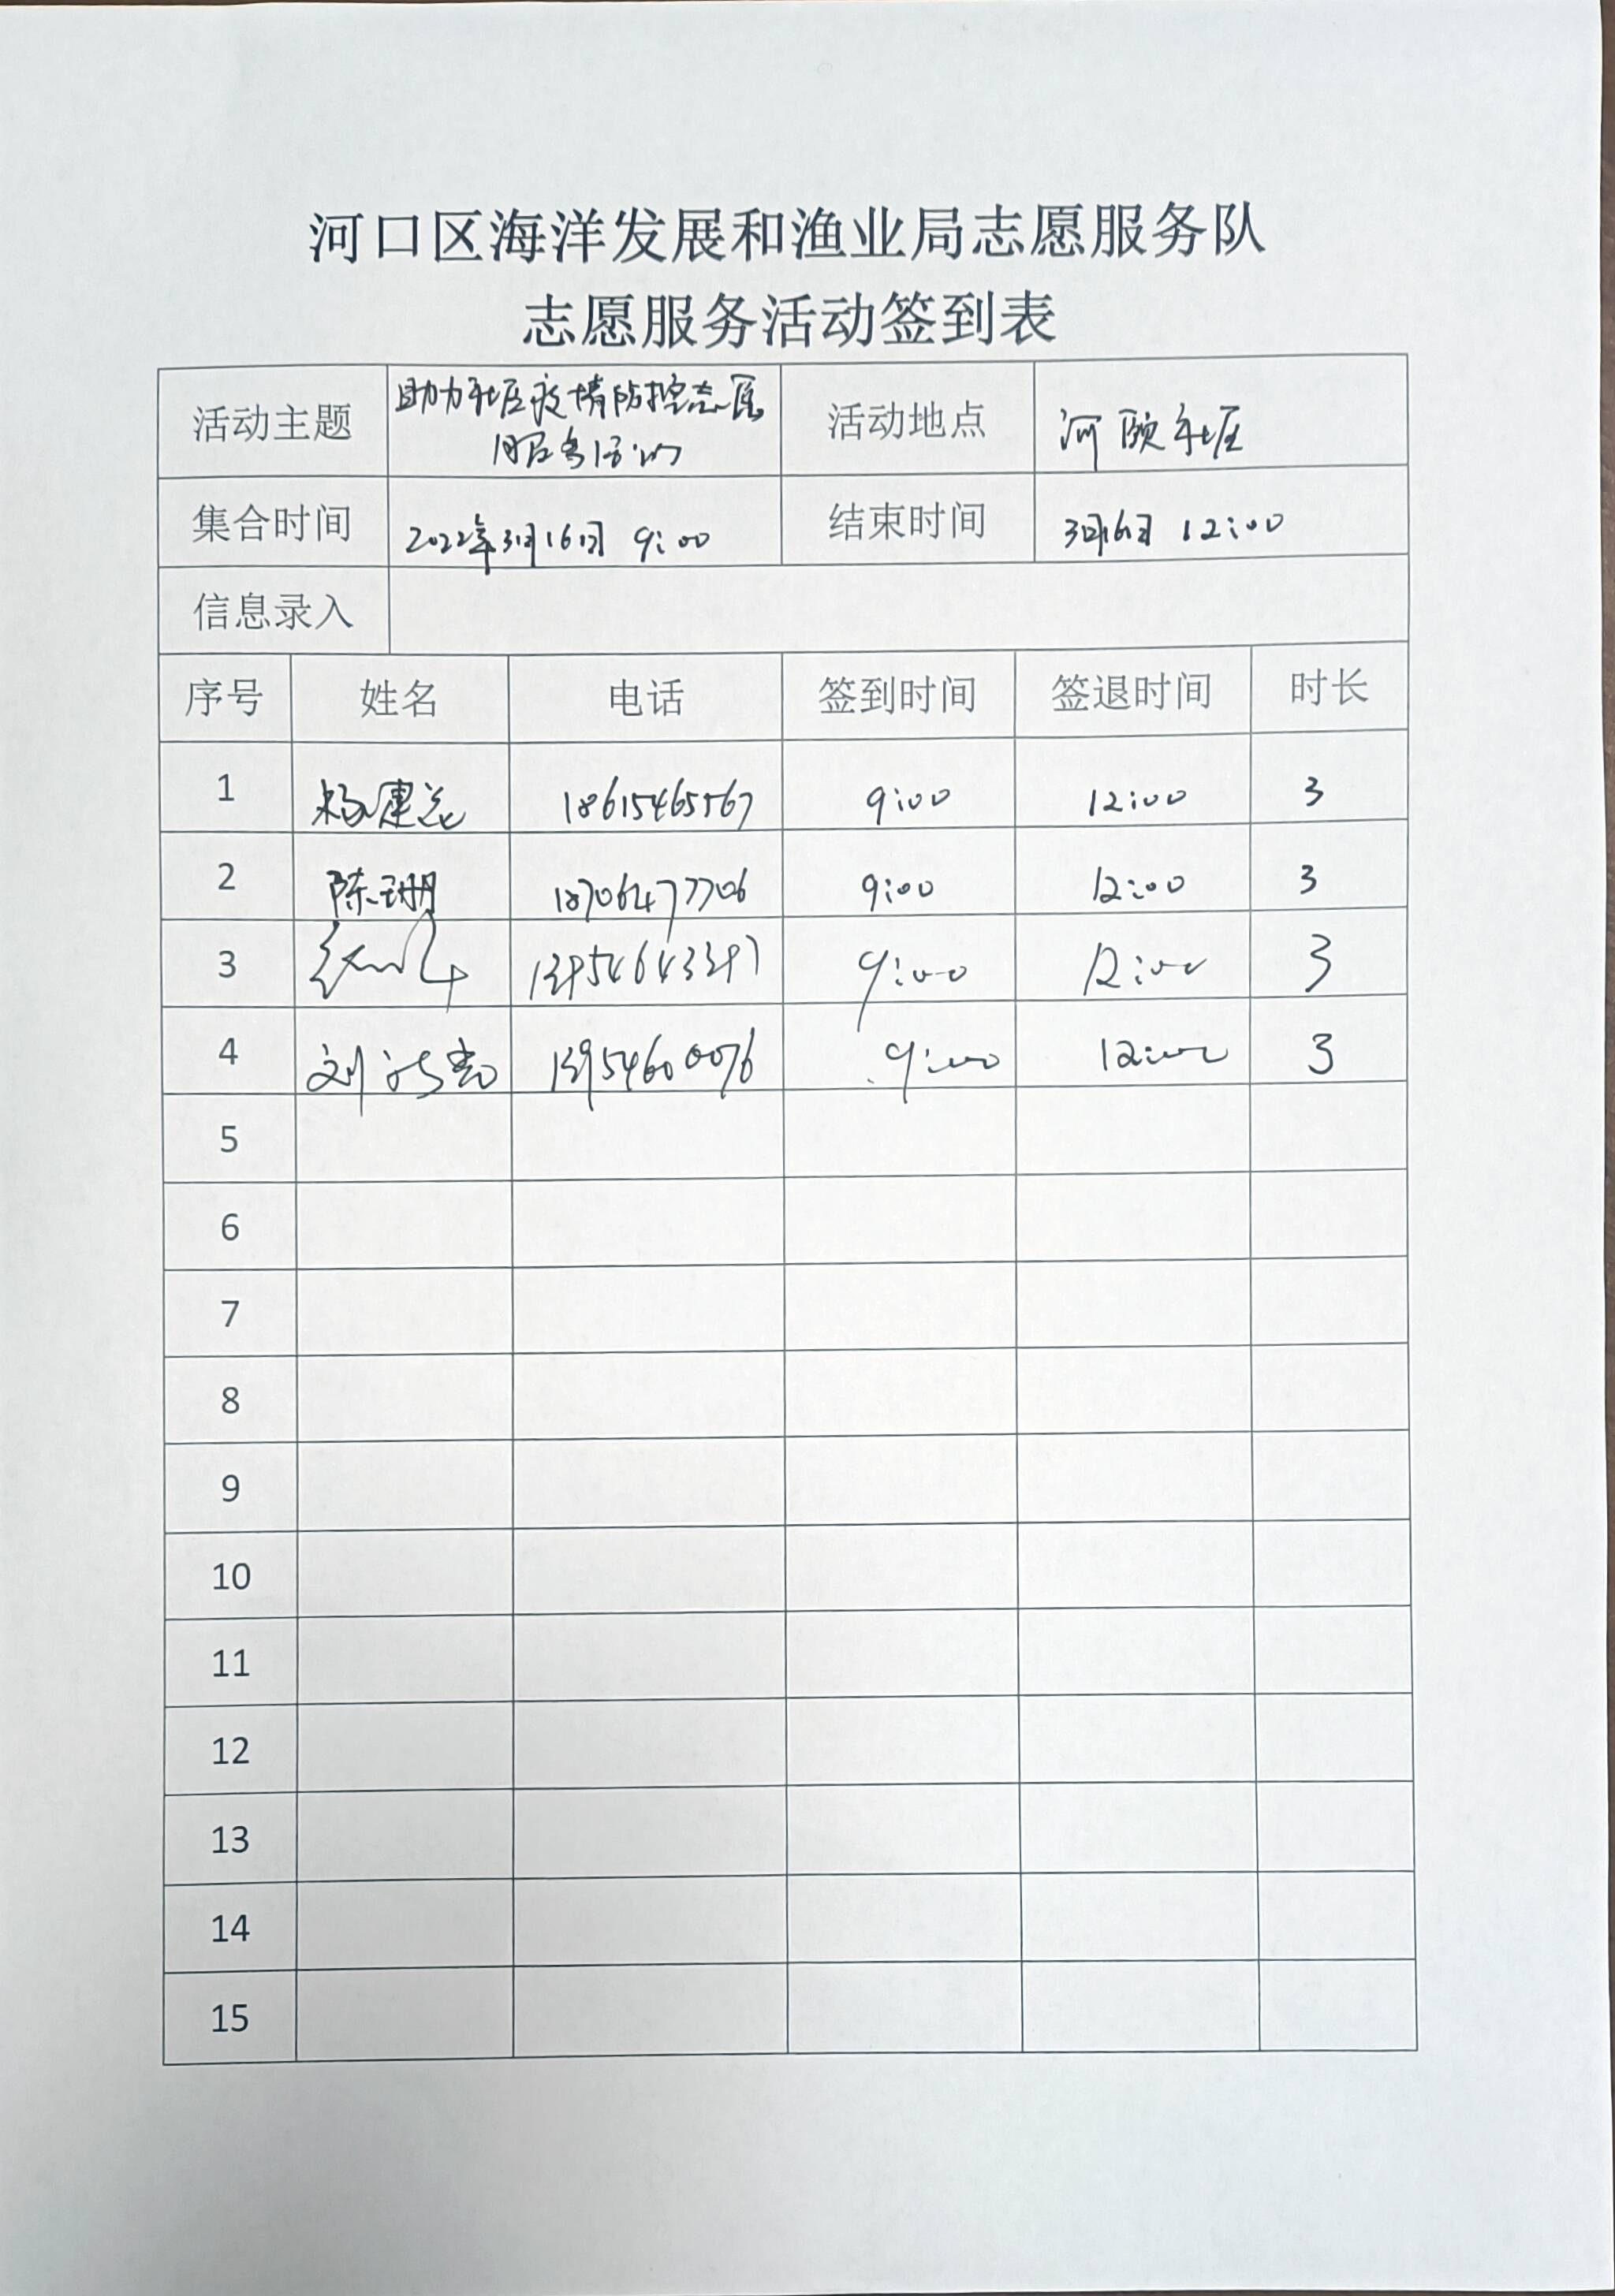 河口区海洋发展和渔业局志愿服务队
志愿服务活动签到表
活动主题 助力社区疫情防控志愿 活动地点 河颐社区
服务活动
集合时间 2022年3月16日 9:00 结束时间 3月16日 12:00
信息录入
序号 姓名 电话 签到时间 签退时间 时长
1 杨建 18615465567 9:00 12:00 3
2 陈珊 18706477706 9:00 12:00 3
3 13954643397 9:00 12:00 3
4 刘 13954600076 9:00 12:00 3
5
6
7
8
9
10
11
12
13
14
15